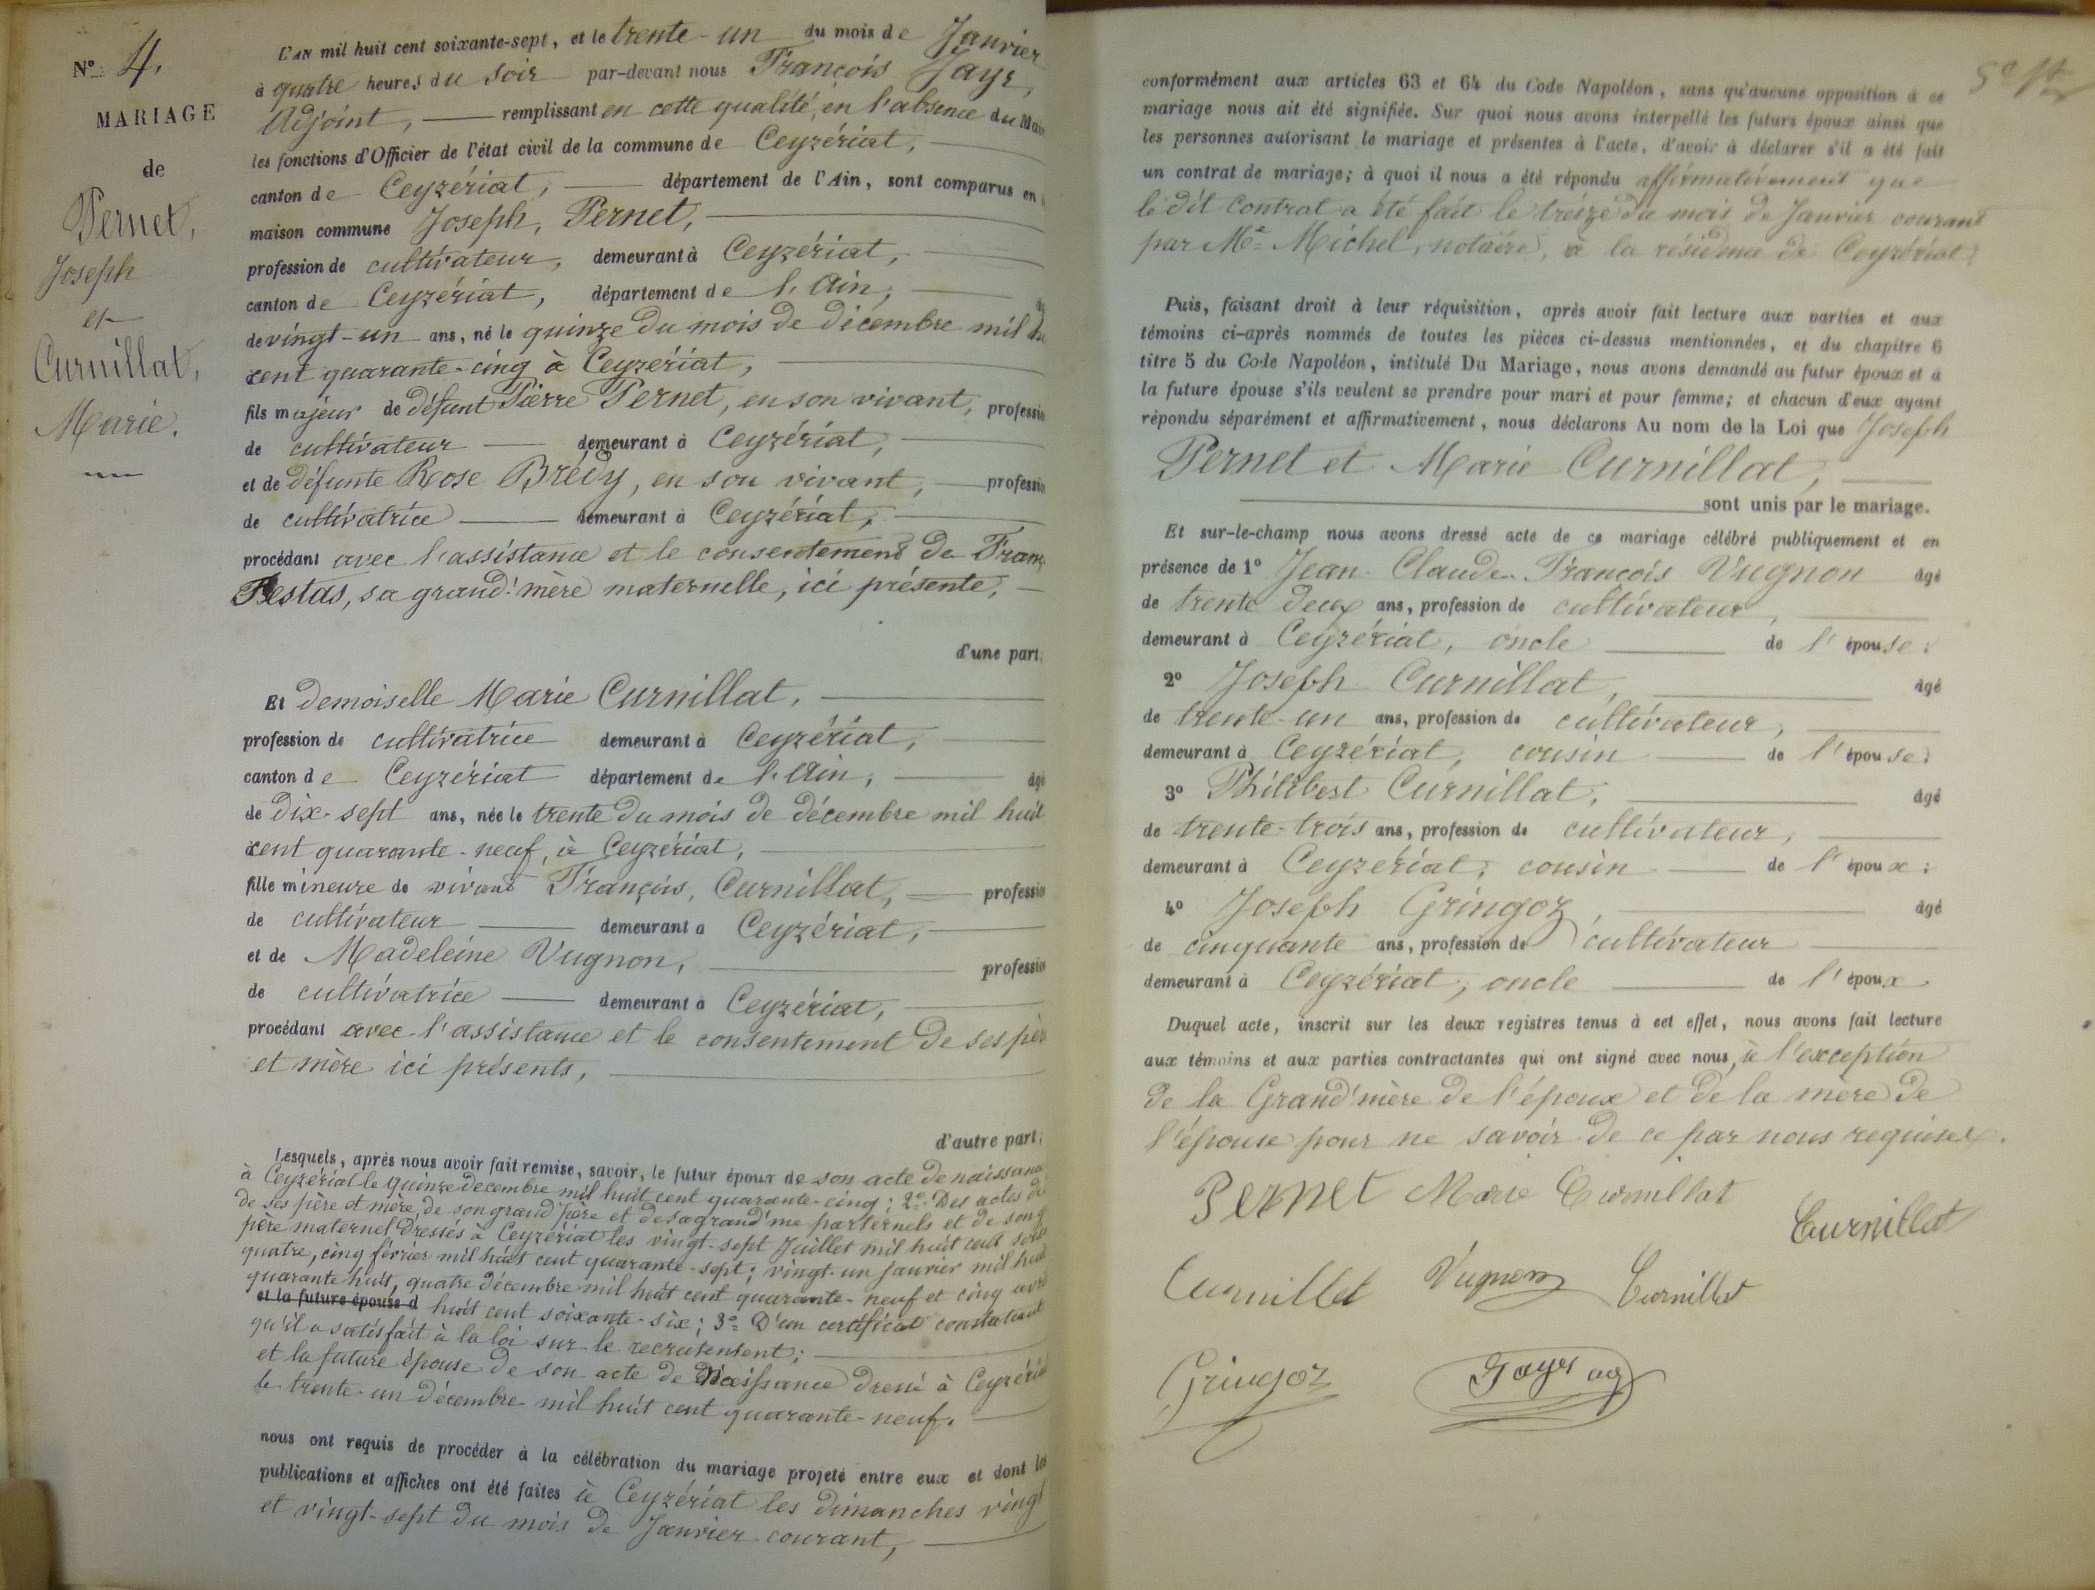 N° 4.
MARIAGE
de
Pernet,
Joseph
et
Curnillat,
Marie.
L'AN mil huit cent soixante-sept, et le trente-un du mois de Janvier
à quatre heures du soir par-devant nous François Jayr,
Adjoint, remplissant en cette qualité, en l'absence du Mai
les fonctions d'Officier de l'état civil de la commune de Ceyzériat,
canton de Ceyzériat, département de l'Ain, sont comparus en
maison commune Joseph, Pernet,
profession de cultivateur, demeurant à Ceyzériat,
canton de Ceyzériat, département de l'Ain,
de vingt-un ans, né le quinze du mois de décembre mil
cent quarante-cinq à Ceyzériat,
fils majeur de défunt Pierre Pernet, en son vivant, professio
de cultivateur demeurant à Ceyzériat,
et de défunte Rose Brédy, en son vivant, professio
de cultivatrice demeurant à Ceyzériat,
procédant avec l'assistance et le consentement de Franç
Pestas, sa grand'mère maternelle, ici présente,
d'une part;
Et demoiselle Marie Curnillat,
profession de cultivatrice demeurant à Ceyzériat,
canton de Ceyzériat département de l'Ain, âgé
de dix-sept ans, née le trente du mois de décembre mil huit
cent quarante-neuf, à Ceyzériat,
fille mineure de vivant François, Curnillat, professio
de cultivateur demeurant à Ceyzériat,
et de Madeleine Vugnon, professio
de cultivatrice demeurant à Ceyzériat,
procédant avec l'assistance et le consentement de ses pèr
et mère ici présents,
d'autre part;
Lesquels, après nous avoir fait remise, savoir, le futur époux de son acte de naissanc
à Ceyzériat le quinze décembre mil huit cent quarante-cinq; 2° Des actes de
de ses père et mère, de son grand'père et de sa grand'me parternels et de son g
père maternel dressés à Ceyzériat les vingt-sept Juillet mil huit cent soix
quatre, cinq février mil huit cent quarante-sept; vingt-un janvier mil huit
quarante huit, quatre décembre mil huit cent quarante-neuf et cinq avri
et la future épouse d huit cent soixante-six; 3° D'un certificat constatant
qu'il a satisfait à la loi sur le recrutement;
et la future épouse de son acte de naissance dressé à Ceyzéri
le trente-un décembre mil huit cent quarante-neuf.
nous ont requis de procéder à la célébration du mariage projeté entre eux et dont les
publications et affiches ont été faites à Ceyzériat les dimanches vingt
et vingt-sept du mois de Janvier courant,
conformément aux articles 63 et 64 du Code Napoléon, sans qu'aucune opposition à ce
mariage nous ait été signifiée. Sur quoi nous avons interpellé les futurs époux ainsi que
les personnes autorisant le mariage et présentes à l'acte, d'avoir à déclarer s'il a été fait
un contrat de mariage; à quoi il nous a été répondu affirmativement que
le dit contrat a été fait le treize du mois de Janvier courant
par Me Michel, notaire, à la résidence de Ceyzériat;
Puis, faisant droit à leur réquisition, après avoir fait lecture aux parties et aux
témoins ci-après nommés de toutes les pièces ci-dessus mentionnées, et du chapitre 6
titre 5 du Code Napoléon, intitulé Du Mariage, nous avons demandé au futur époux et à
la future épouse s'ils veulent se prendre pour mari et pour femme; et chacun d'eux ayant
répondu séparément et affirmativement, nous déclarons Au nom de la Loi que Joseph
Pernet et Marie Curnillat,
sont unis par le mariage.
Et sur-le-champ nous avons dressé acte de ce mariage célébré publiquement et en
présence de 1° Jean Claude François Vugnon âgé
de trente deux ans, profession de cultivateur,
demeurant à Ceyzériat, oncle de l'épouse;
2° Joseph Curnillat, âgé
de trente-un ans, profession de cultivateur,
demeurant à Ceyzériat, cousin de l'épouse;
3° Philibert Curnillat, âgé
de trente-trois ans, profession de cultivateur,
demeurant à Ceyzériat, cousin de l'époux;
4° Joseph Gringoz, âgé
de cinquante ans, profession de cultivateur
demeurant à Ceyzériat, oncle de l'époux
Duquel acte, inscrit sur les deux registres tenus à cet effet, nous avons fait lecture
aux témoins et aux parties contractantes qui ont signé avec nous, à l'exception
de la Grand'mère de l'époux et de la mère de
l'épouse pour ne savoir de ce par nous requises.
Pernet Marie Curnillat
Curnillat
Curnillat Vugnon Curnillat
Gringoz Jayr adj